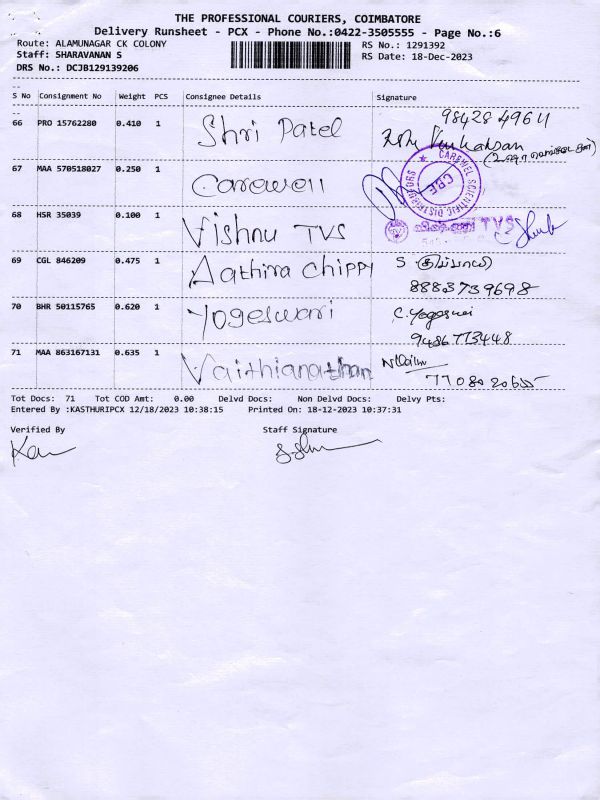 THE PROFESSIONAL COURIERS, COIMBATORE
Delivery Runsheet - PCX - Phone No.:0422-3505555 - Page No.:6
Route: ALAMUNAGAR CK COLONY RS No.: 1291392
Staff: SHARAVANAN S RS Date: 18-Dec-2023
DRS No.: DCJB129139206
S No Consignment No Weight PCS Consignee Details Signature
66 PRO 15762280 0.410 1 Shri Patel 9842849611
Venkatesan
67 MAA 570518027 0.250 1 Carewell CAREWEL SCIENTIFIC DISTRIBUTORS CBE
68 HSR 35039 0.100 1 Vishnu TVS TVS
69 CGL 846209 0.475 1 Aathira chippy S
8883739698
70 BHR 50115765 0.620 1 Yogeswari C. Yogeswari
9486773448
71 MAA 863167131 0.635 1 Vaithianathan
Tot Docs: 71 Tot COD Amt: 0.00 Delvd Docs: Non Delvd Docs: Delvy Pts:
Entered By :KASTHURIPCX 12/18/2023 10:38:15 Printed On: 18-12-2023 10:37:31
Verified By Staff Signature